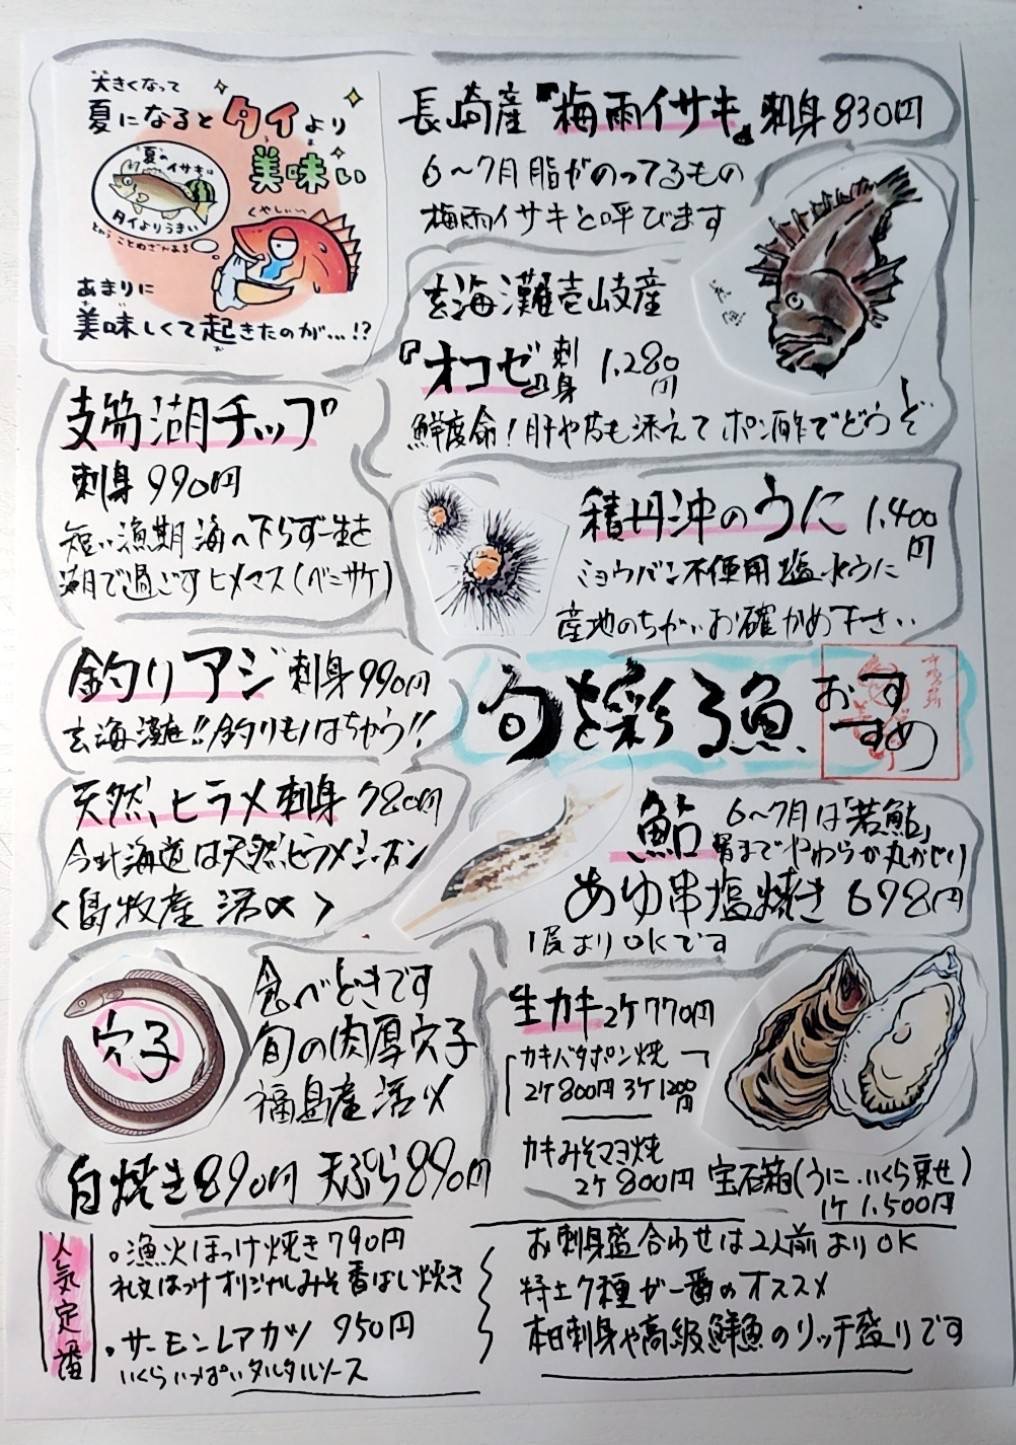 大きくなって
夏になるとタイより
美味い
夏の
イサキは
タイよりうまい
ということわざんある
くやしい
あまりに
美味しくて起きたのが…!?
長崎産『梅雨イサキ』刺身830円
6〜7月脂がのってるもの
梅雨イサキと呼びます
玄海灘壱岐産
『オコゼ』刺身 1,280円
鮮度命!肝や皮も添えてポン酢でどうぞ
支笏湖チップ
刺身990円
短い漁期海へ下らず一生を
湖で過ごすヒメマス(ベニサケ)
積丹沖のうに 1,400円
ミョウバン不使用塩水うに
産地のちがいお確かめ下さい
釣りアジ刺身990円
玄海灘産!!釣りものはちがう!!
旬を彩る魚
おすすめ
天然ヒラメ刺身780円
今北海道は天然ヒラメシーズン
<島牧産活〆>
鮎 6〜7月は「若鮎」
骨までやわらか丸かじり
あゆ串塩焼き698円
1尾よりOKです
穴子
食べどきです
旬の肉厚穴子
福島産活〆
白焼き890円 天ぷら890円
生カキ2ケ770円
カキバタポン焼
2ケ800円3ケ1200円
カキみそマヨ焼
2ケ800円
宝石箱(うに.いくら乗せ)
1ケ1,500円
人気定番
。漁火ほっけ焼き790円
礼文ほっけオリジナルみそ香ばし焼き
・サーモンレアカツ 950円
いくらいっぱいタルタルソース
お刺身盛合わせは2人前よりOK
特上7種が一番のオススメ
本日刺身や高級鮮魚のリッチ盛りです